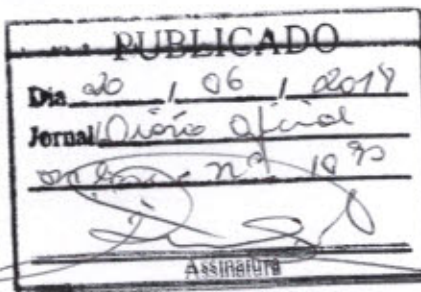 PUBLICADO
Dia 20 / 06 / 2018
Jornal Diário Oficial
nº 1090
Assinatura